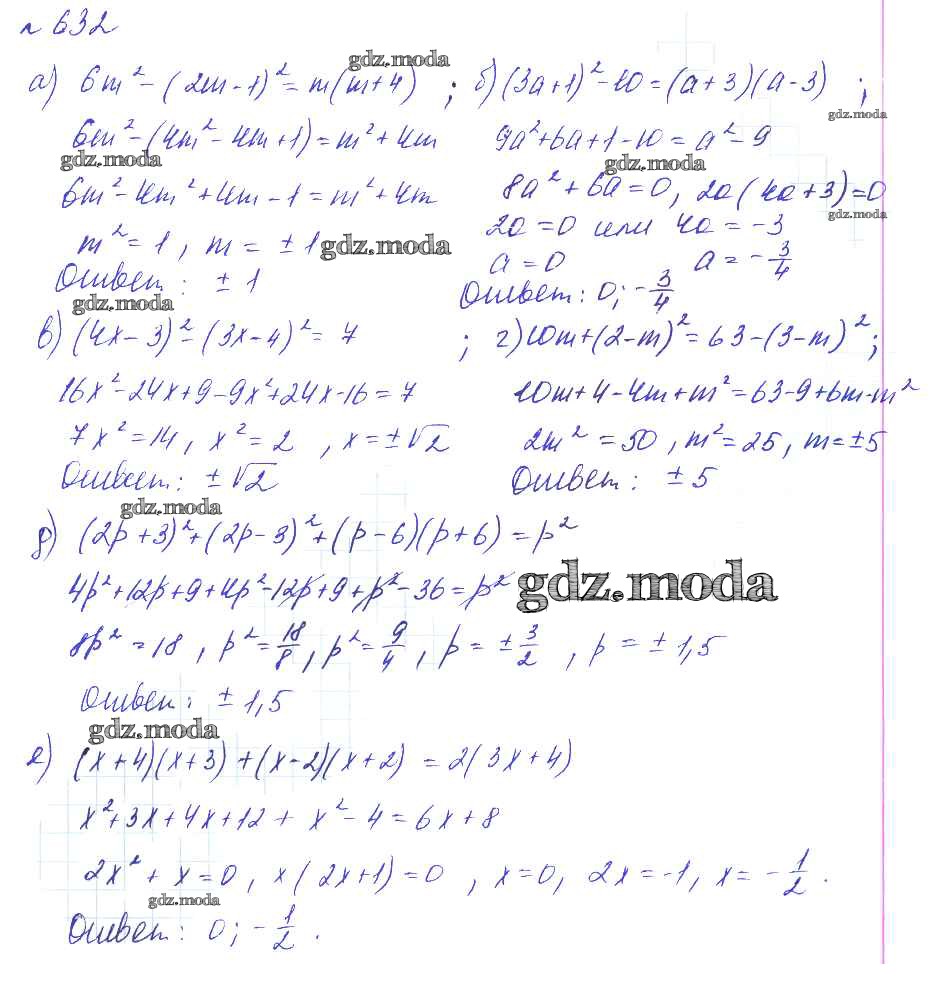 № 632
gdz.moda
а) 6m² - (2m - 1)² = m(m+4) ; б) (3a+1)² - 10 = (a+3)(a-3) ;
gdz.moda
6m² - (4m² - 4m + 1) = m² + 4m 9a² + 6a + 1 - 10 = a² - 9
gdz.moda gdz.moda
6m² - 4m² + 4m - 1 = m² + 4m 8a² + 6a = 0, 2a(4a+3) = 0
gdz.moda
m² = 1, m = ± 1 2a = 0 или 4a = -3
gdz.moda
Ответ: ± 1 a = 0 a = - 3/4
gdz.moda
Ответ: 0; - 3/4
в) (4x - 3)² - (3x - 4)² = 7 ; г) 10m + (2 - m)² = 63 - (3 - m)² ;
16x² - 24x + 9 - 9x² + 24x - 16 = 7 10m + 4 - 4m + m² = 63 - 9 + 6m - m²
7x² = 14, x² = 2, x = ±√2 2m² = 50, m² = 25, m = ±5
Ответ: ±√2 Ответ: ± 5
gdz.moda
д) (2p + 3)² + (2p - 3)² + (p - 6)(p + 6) = p²
4p² + 12p + 9 + 4p² - 12p + 9 + p² - 36 = p² gdz.moda
8p² = 18, p² = 18/8, p² = 9/4, p = ± 3/2, p = ± 1,5
Ответ: ± 1,5
gdz.moda
е) (x + 4)(x + 3) + (x - 2)(x + 2) = 2(3x + 4)
x² + 3x + 4x + 12 + x² - 4 = 6x + 8
2x² + x = 0, x(2x + 1) = 0, x = 0, 2x = -1, x = - 1/2.
gdz.moda
Ответ: 0; - 1/2.